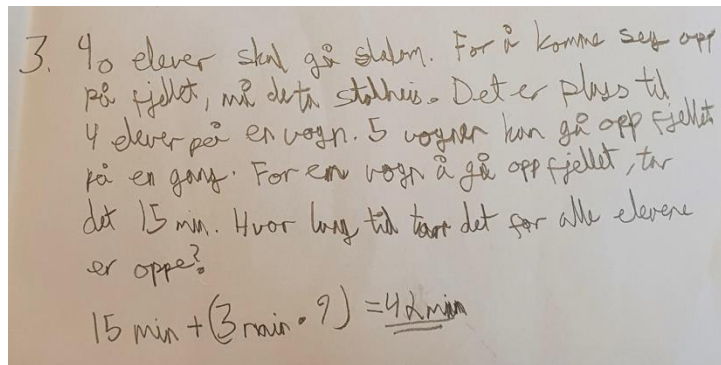 3. 40 elever skal gå slalom. For å komme seg opp
på fjellet, må de ta stolheis. Det er plass til
4 elever på en vogn. 5 vogner kan gå opp fjellet
på en gang. For en vogn å gå opp fjellet, tar
det 15 min. Hvor lang tid tar det før alle elevene
er oppe?
15 min + (3 min · 9) = 42 min